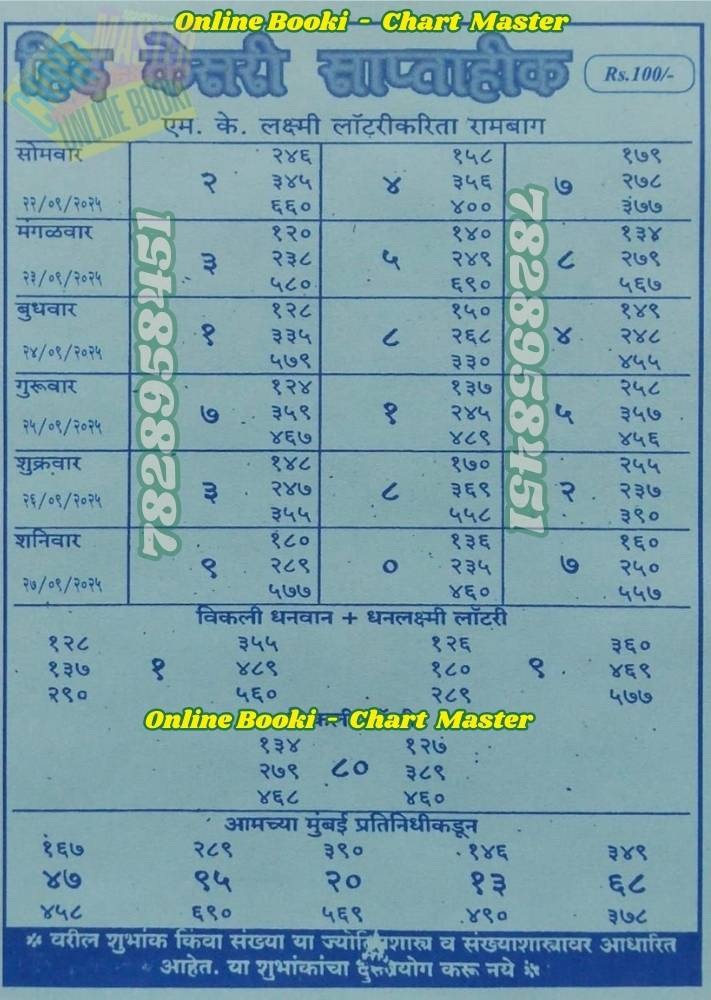 Online Booki - Chart Master
हिंद केसरी साप्ताहीक Rs.100/-
एम. के. लक्ष्मी लॉटरीकरिता रामबाग
सोमवार २४६ १५८ १७९
२ ३४५ ४ ३५६ ७ २७८
२२/०९/२०२५ ६६० ४०० ३७७
मंगळवार १२० १४० १३४
३ २३८ ५ २४९ ८ २७९
२३/०९/२०२५ ५८० ६९० ५६७
बुधवार १२८ १५० १४९
१ ३३५ ८ २६८ ४ २४८
२४/०९/२०२५ ५७९ ३३० ४५५
गुरूवार १२४ १३७ २५८
७ ३५९ १ २४५ ५ ३५७
२५/०९/२०२५ ४६७ ४८९ ४५६
शुक्रवार १४८ १७० २५५
३ २४७ ८ ३६९ २ २३७
२६/०९/२०२५ ३५५ ५५८ ३९०
शनिवार १८० १३६ १६०
९ २८९ ० २३५ ७ २५०
२७/०९/२०२५ ५७७ ४६० ५५७
7828958451
7828958451
विकली धनवान + धनलक्ष्मी लॉटरी
१२८ ३५५ १२६ ३६०
१३७ १ ४८९ १८० ९ ४६९
२९० ५६० २८९ ५७७
Online Booki - Chart Master
१३४ १२७
२७९ ८० ३८९
४६८ ४६०
आमच्या मुंबई प्रतिनिधीकडून
१६७ २८९ ३९० १४६ ३४९
४७ ९५ २० १३ ६८
४५८ ६९० ५६९ ४९० ३७८
* वरील शुभांक किंवा संख्या या ज्योतिषशास्त्र व संख्याशास्त्रावर आधारित
आहेत. या शुभांकांचा दुरुपयोग करू नये *